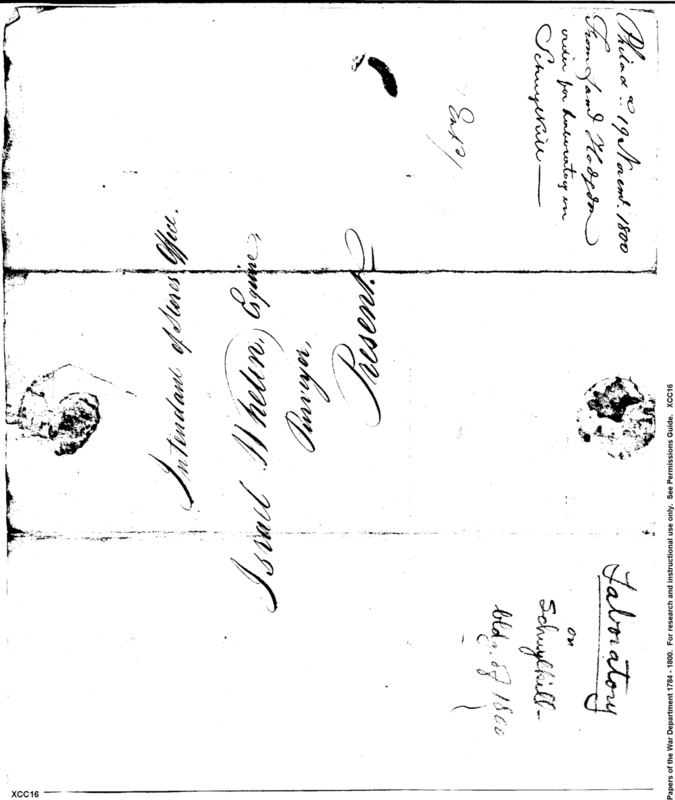 Philad.a 19 Novemb. 1800
From Saml Hodgdon
order for Laboratory on
Schuylkill —
Intendant of Stores Office.
Israel Whelen, Esquire,
Purveyor,
Present
Laboratory
on
Schuylkill—
bldg. of 1800
XCC16
Papers of the War Department 1784 - 1800. For research and instructional use only. See Permissions Guide. XCC16